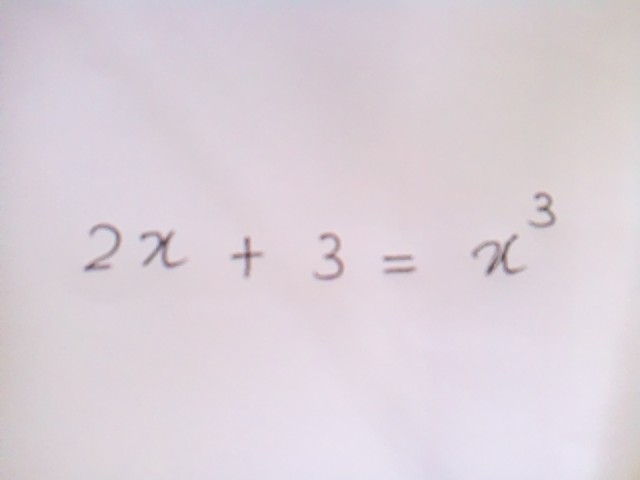 2x + 3 = x³